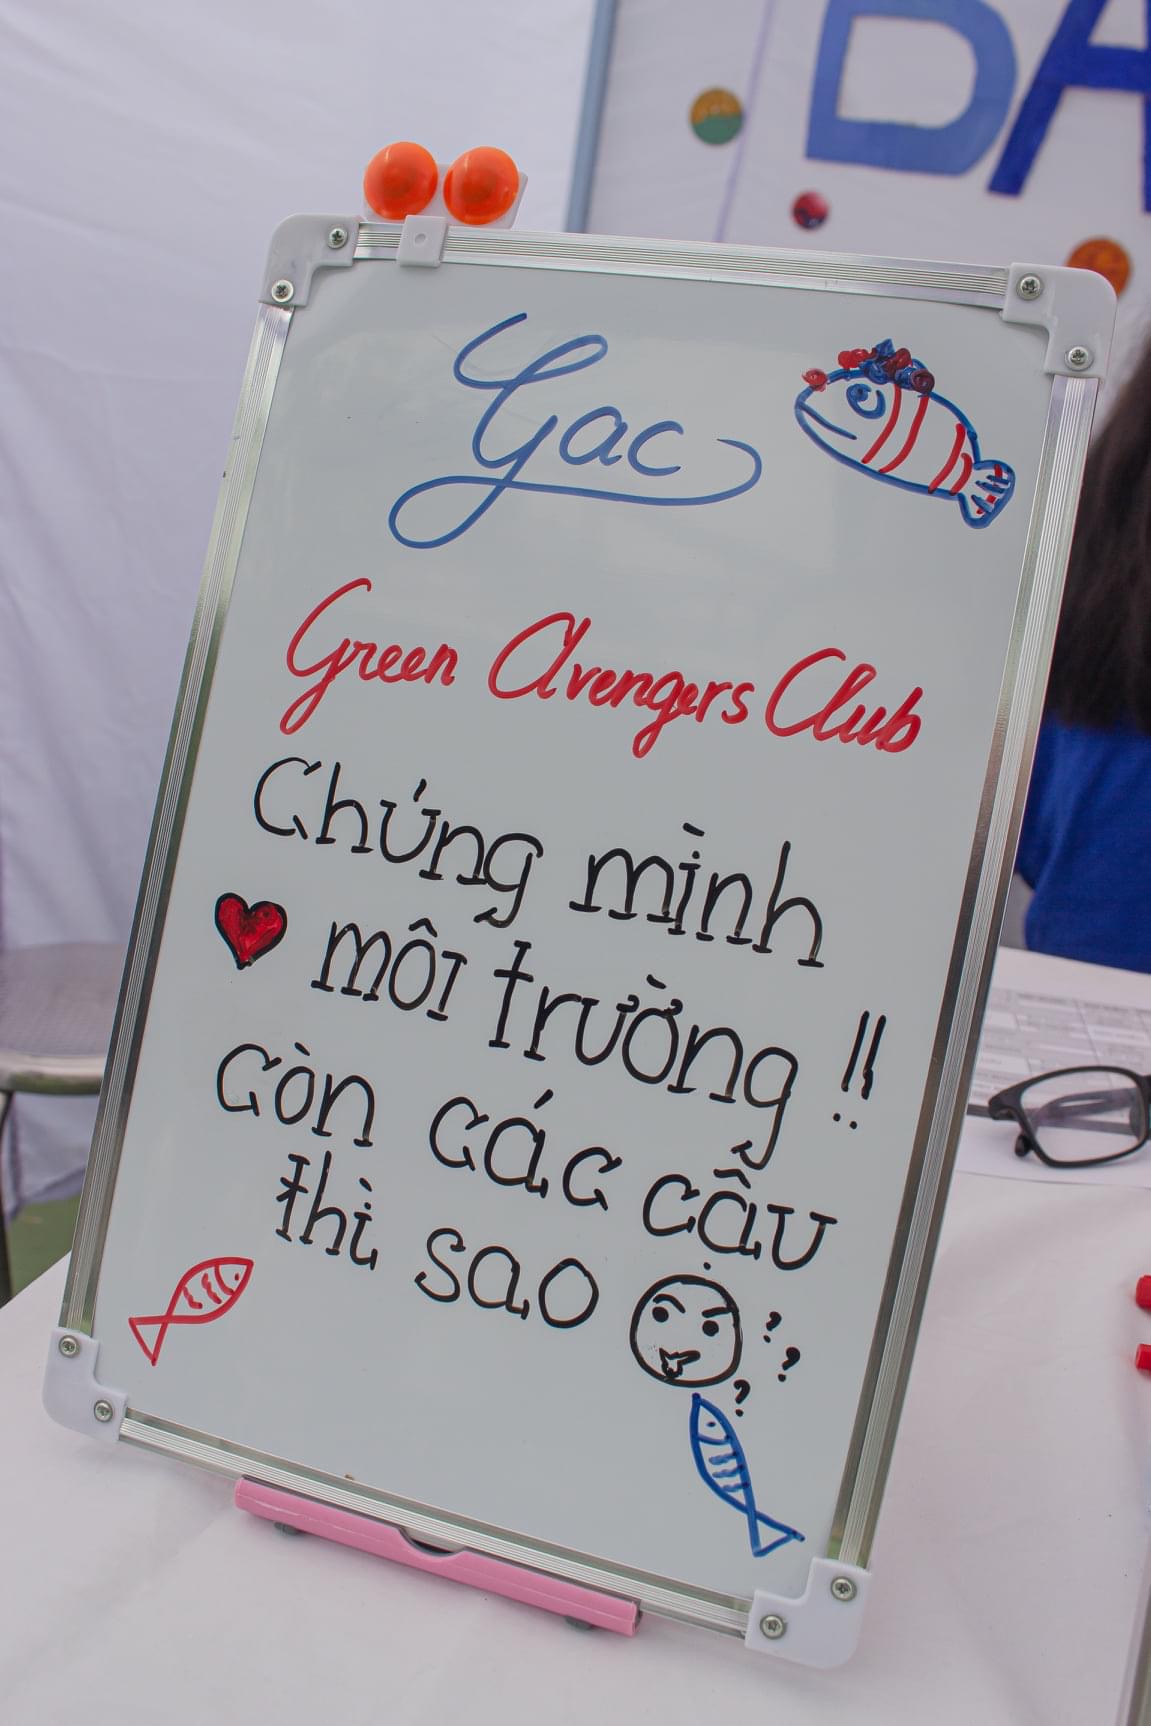 BA
Gac
Green Avengers Club
Chúng mình
❤ môi trường !!
còn các cậu
thì sao
? ? ?